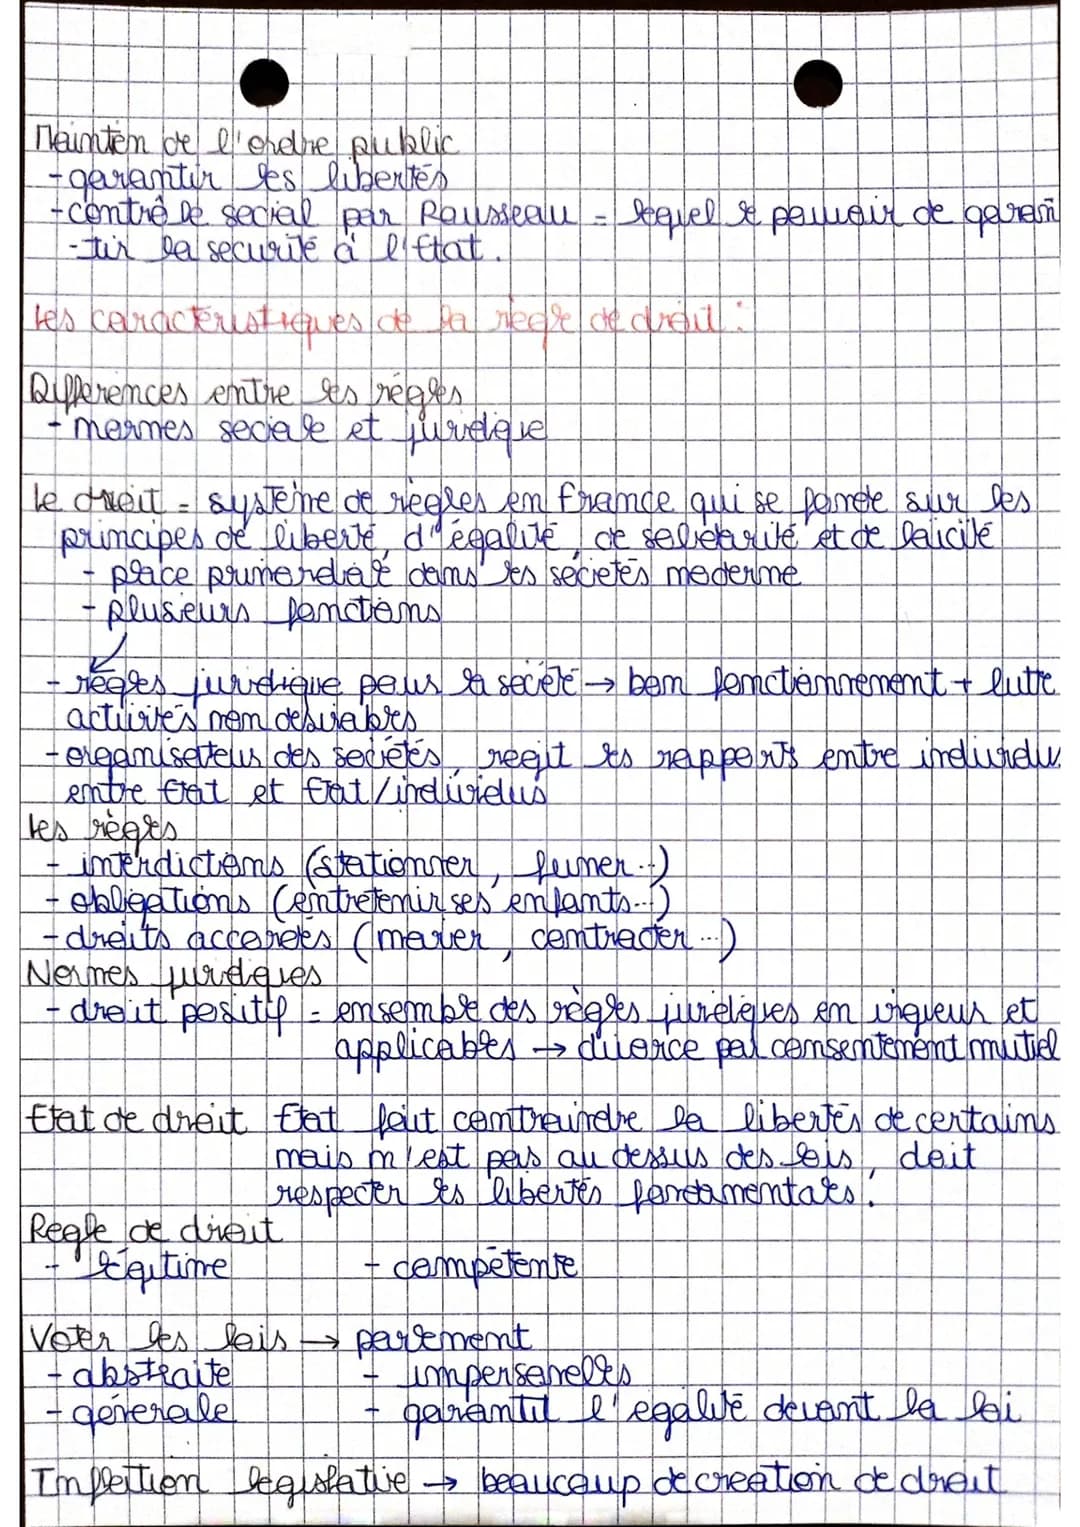 Maintien de l'ordre public
- garantir les libertés
- contrê le social par Rousseau = lequel le pouvoir de garan
- tir la securité à l'Etat.
Les caractéristiques de la règle de droit :
Differences entre les règles
- normes sociale et juridique
Le droit = système de règles en France qui se fonde sur les
principes de liberté, d'égalité, de solidarité et de laïcité
- place primordiale dans les sociétés moderne
- plusieurs fonctions
- règles juridique pour la société → bon fonctionnement + lutte
activités non désirables
- organisateur des sociétés, regit les rapports entre individu
entre Etat et Etat/individus
Les règles
- interdictions (stationner, fumer...)
- obligations (entretenir ses enfants...)
- droits accordés (marier, contracter...)
Normes juridiques
- droit positif = ensemble des règles juridiques en vigueur et
applicables → divorce par consentement mutuel
Etat de droit Etat peut contraindre la libertés de certains
mais n'est pas au dessus des lois, doit
respecter les libertés fondamentales.
Règle de droit
- légitime - compétente
Voter les lois → parlement
- abstraite - impersonelles
- génerale - garantit l'egalité devant la loi
Inflation législative → beaucoup de creation de droit